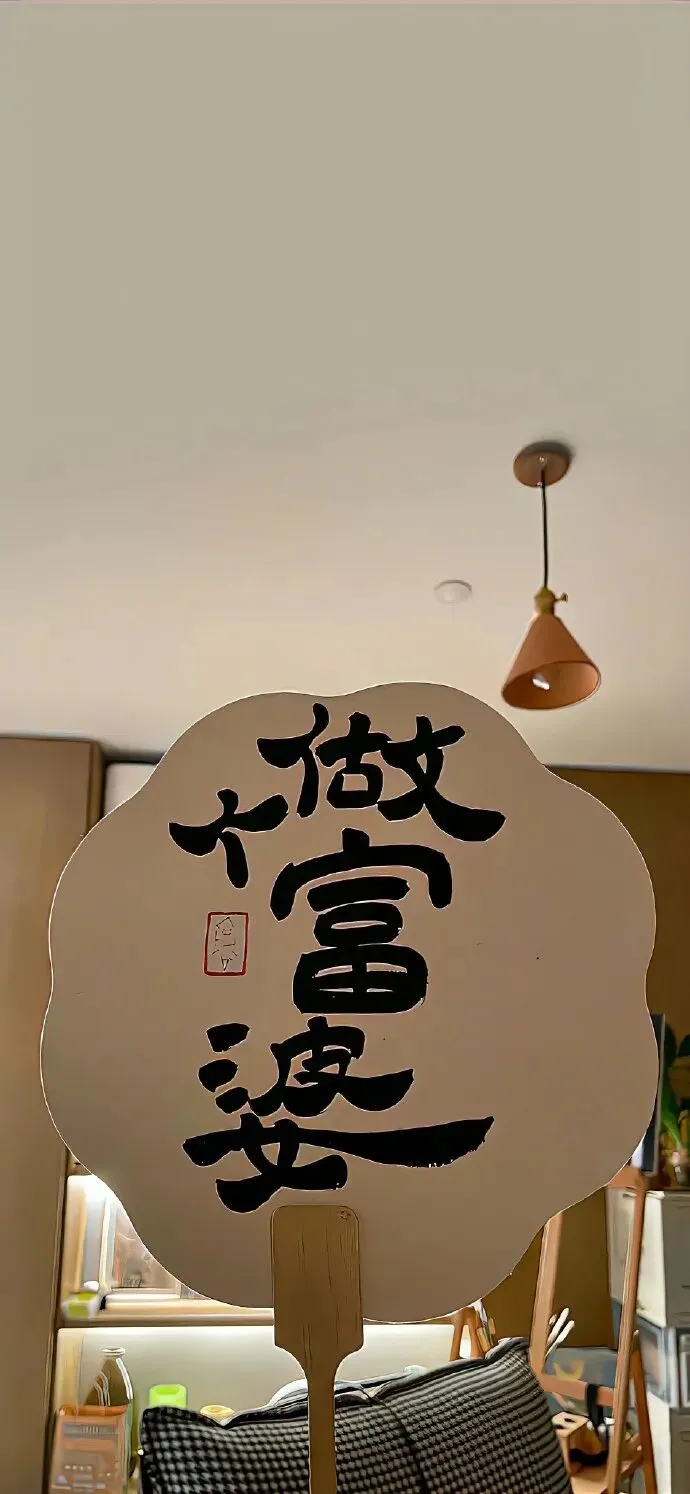 做个富婆